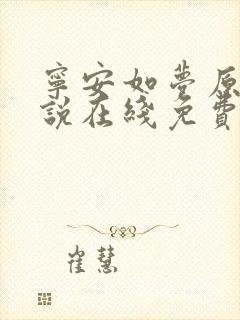 寧安如夢原
說在綫免費
崔慧